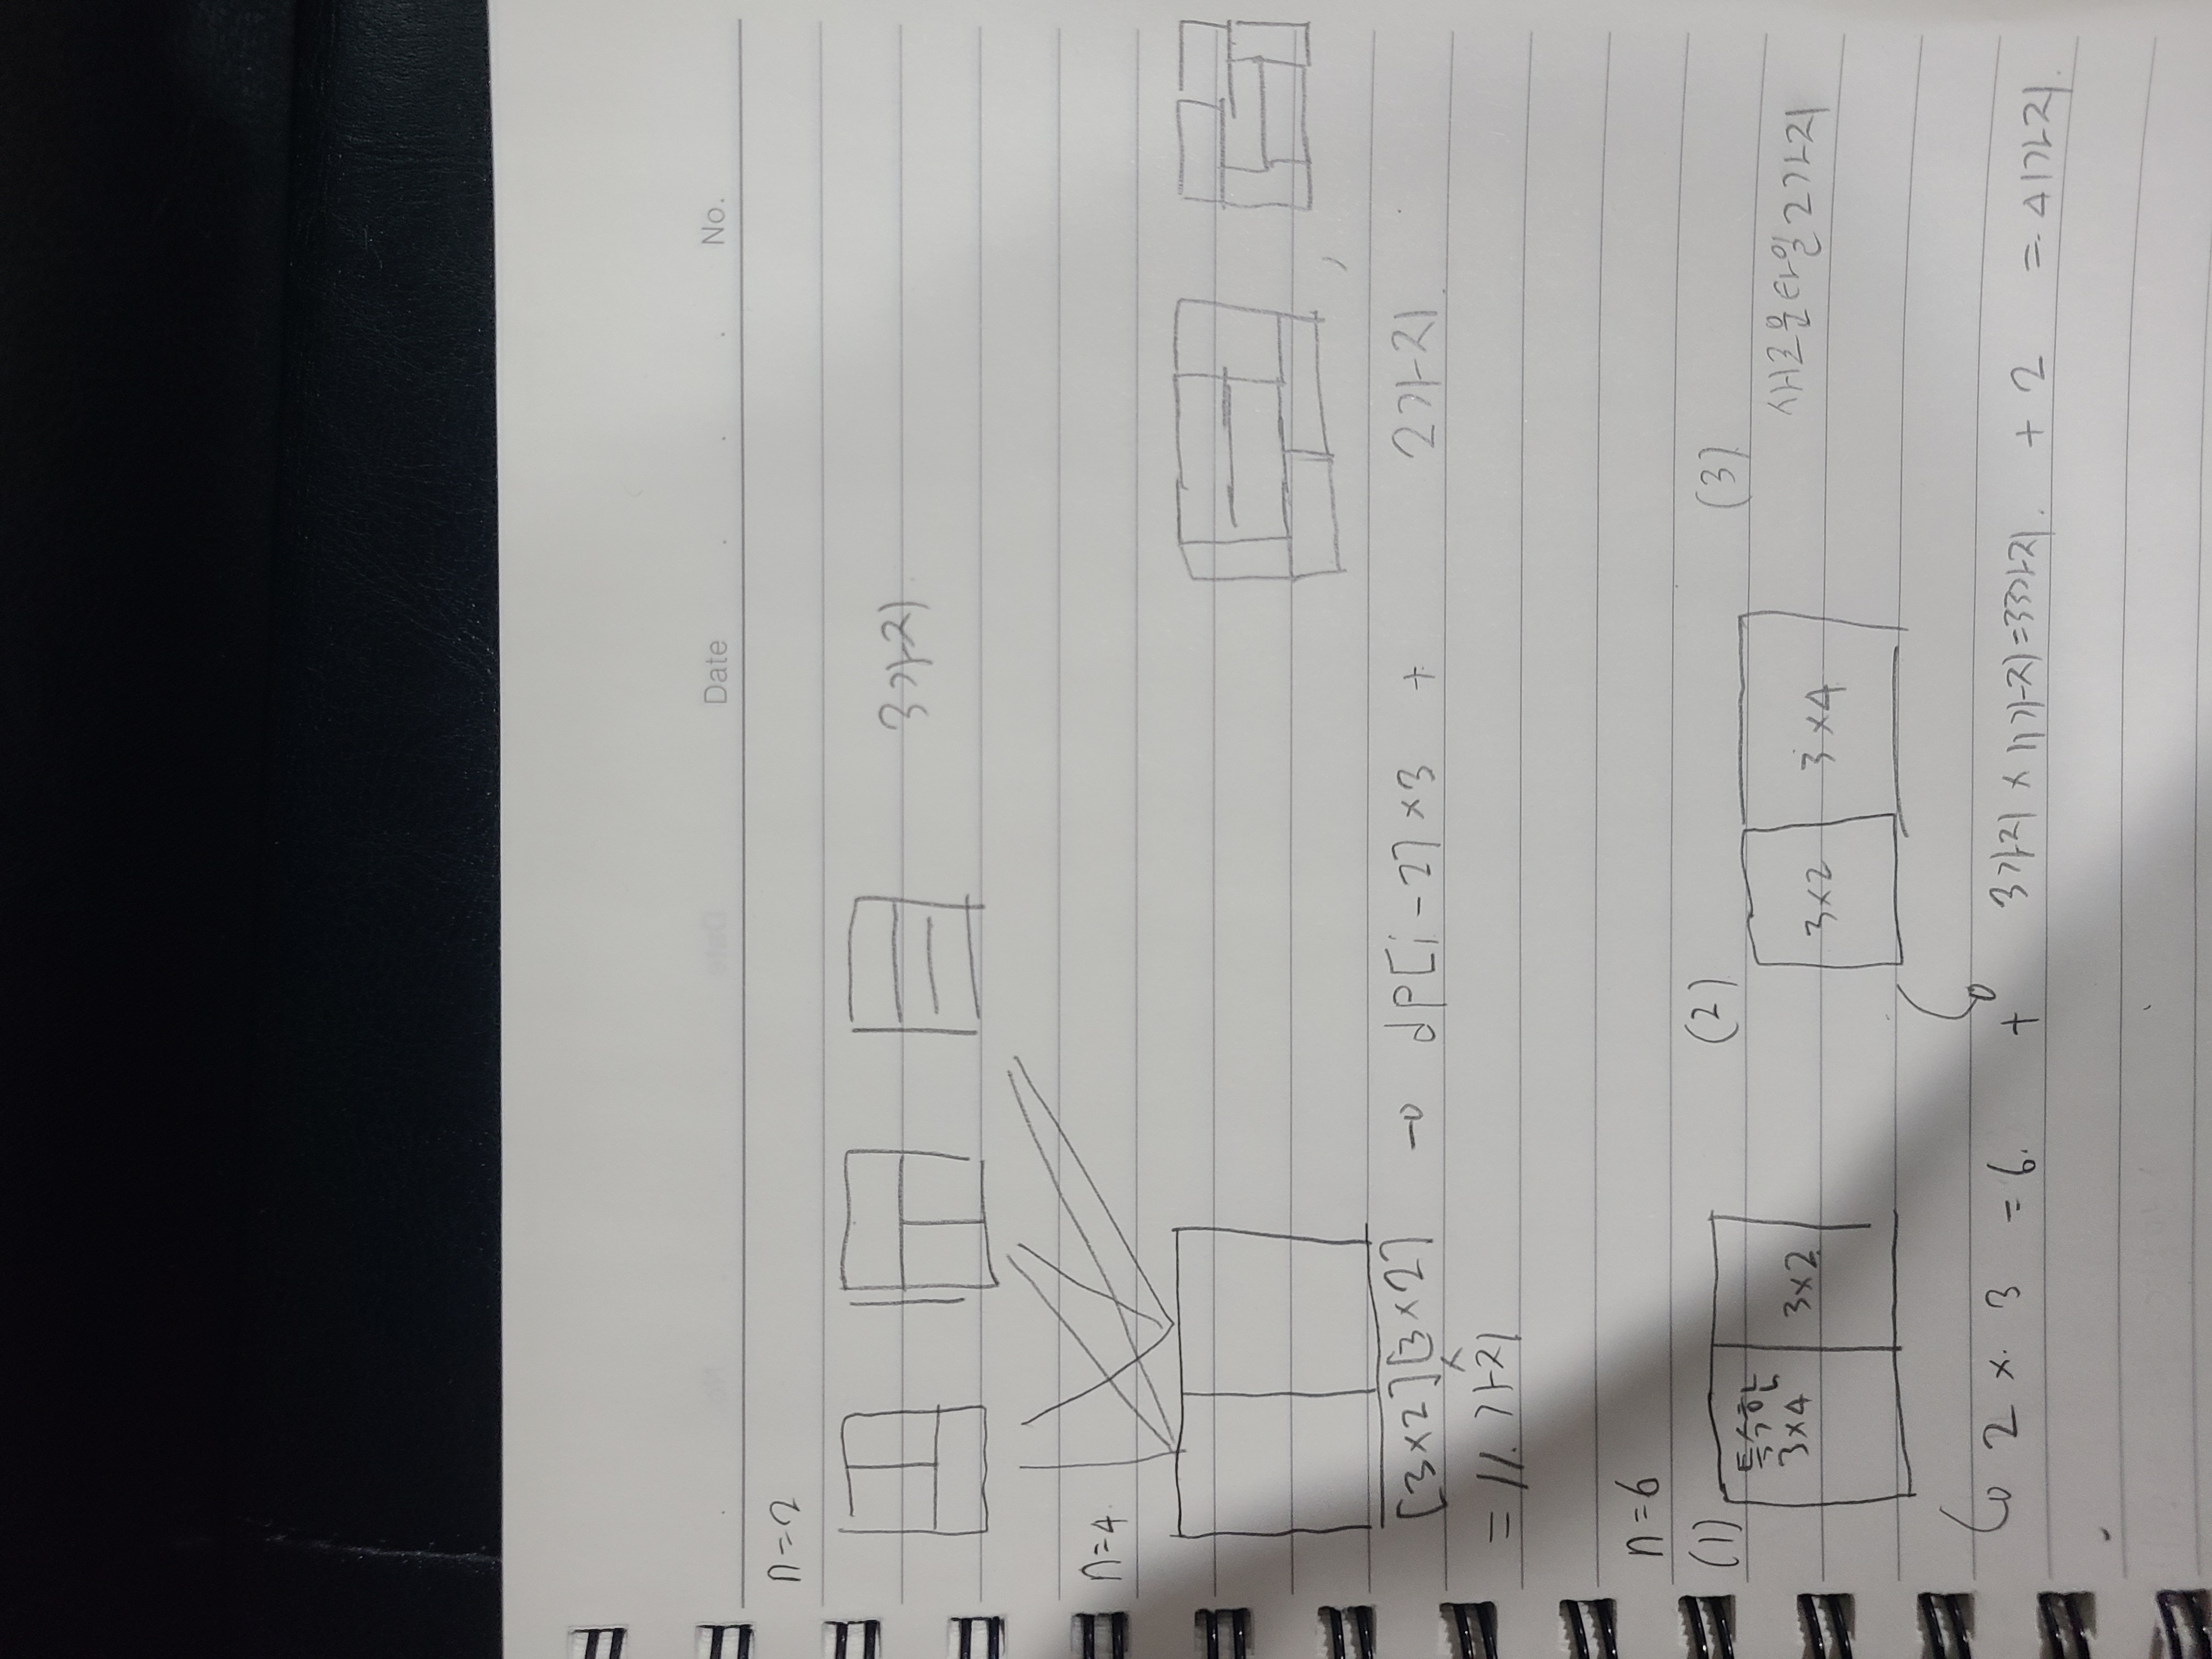 Date . . . No.
n=2
3가지
n=4
[3×2][3×2] → dp[i-2]×3 + 2가지
= 11. 가지
n=6
(1) (2) (3)
특수한
3×4 3×2 3×2 3×4 새로운타일 2가지
2 × 3 = 6. + 3가지 × 11가지=33가지. + 2 = 41가지.